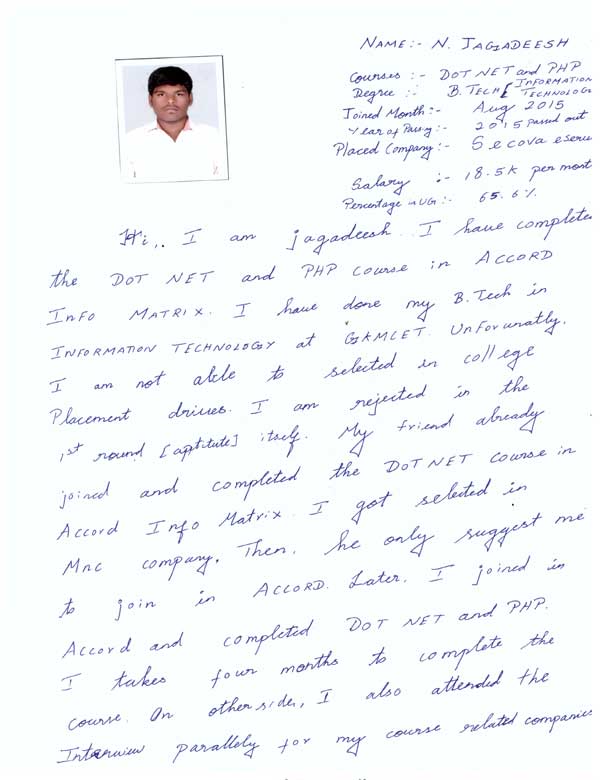 NAME:- N. JAGADEESH
Courses :- DOT NET and PHP
Degree :- B. TECH [INFORMATION TECHNOLOG
Joined Month:- Aug 2015
Year of Passing:- 2015 Passed out
Placed Company:- Secova eServ
Salary :- 18.5K per mont
Percentage in UG:- 65.6%
Hi,. I am jagadeesh. I have complete
the DOT NET and PHP course in ACCORD
INFO MATRIX. I have done my B.Tech in
INFORMATION TECHNOLOGY at GKMCET. Unforunatly,
I am not able to selected in college
Placement drives. I am rejected in the
1st round [aptitute] itself. My friend already
joined and completed the DOT NET course in
Accord Info Matrix. I got selected in
Mnc company. Then, he only suggest me
to join in ACCORD. Later, I joined in
Accord and completed DOT NET and PHP.
I takes four months to complete the
course. On other side, I also attended the
Interview parallely for my course related companies